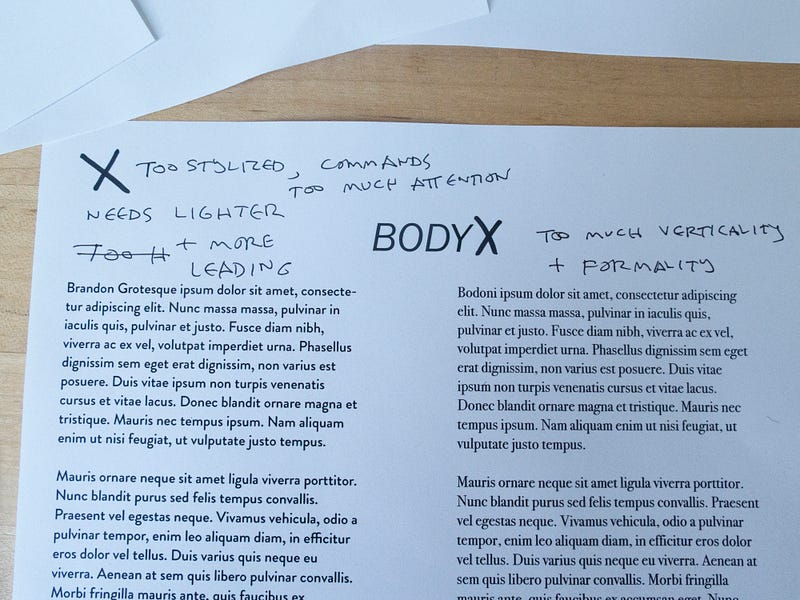 X TOO STYLIZED, COMMANDS
TOO MUCH ATTENTION
NEEDS LIGHTER
TOO H + MORE
LEADING
BODY X
TOO MUCH VERTICALITY
+ FORMALITY
Brandon Grotesque ipsum dolor sit amet, consecte-
tur adipiscing elit. Nunc massa massa, pulvinar in
iaculis quis, pulvinar et justo. Fusce diam nibh,
viverra ac ex vel, volutpat imperdiet urna. Phasellus
dignissim sem eget erat dignissim, non varius est
posuere. Duis vitae ipsum non turpis venenatis
cursus et vitae lacus. Donec blandit ornare magna et
tristique. Mauris nec tempus ipsum. Nam aliquam
enim ut nisi feugiat, ut vulputate justo tempus.
Mauris ornare neque sit amet ligula viverra porttitor.
Nunc blandit purus sed felis tempus convallis.
Praesent vel egestas neque. Vivamus vehicula, odio a
pulvinar tempor, enim leo aliquam diam, in efficitur
eros dolor vel tellus. Duis varius quis neque eu
viverra. Aenean at sem quis libero pulvinar convallis.
Morbi fringilla mauris ante, quis faucibus ex
Bodoni ipsum dolor sit amet, consectetur adipiscing
elit. Nunc massa massa, pulvinar in iaculis quis,
pulvinar et justo. Fusce diam nibh, viverra ac ex vel,
volutpat imperdiet urna. Phasellus dignissim sem eget
erat dignissim, non varius est posuere. Duis vitae
ipsum non turpis venenatis cursus et vitae lacus.
Donec blandit ornare magna et tristique. Mauris nec
tempus ipsum. Nam aliquam enim ut nisi feugiat, ut
vulputate justo tempus.
Mauris ornare neque sit amet ligula viverra porttitor.
Nunc blandit purus sed felis tempus convallis. Praesent
vel egestas neque. Vivamus vehicula, odio a pulvinar
tempor, enim leo aliquam diam, in efficitur eros dolor
vel tellus. Duis varius quis neque eu viverra. Aenean at
sem quis libero pulvinar convallis. Morbi fringilla
mauris ante, quis faucibus ex accumsan eget. Nunc